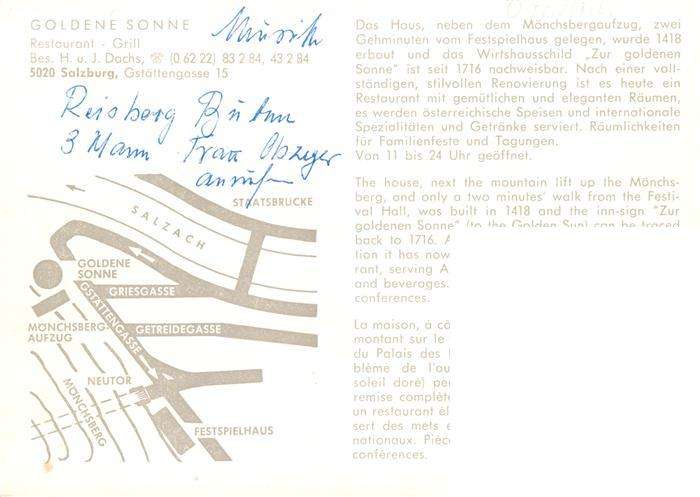 GOLDENE SONNE
Musik
Restaurant - Grill
Bes. H. u. J. Dachs, ☏ (0 62 22) 83 2 84, 43 2 84
5020 Salzburg, Gstättengasse 15
3 Mann Frau
anrufen
STAATSBRÜCKE
SALZACH
GOLDENE
SONNE
GRIESGASSE
GSTÄTTENGASSE
MÖNCHSBERG-
AUFZUG
GETREIDEGASSE
NEUTOR
MÖNCHSBERG
FESTSPIELHAUS
Das Haus, neben dem Mönchsbergaufzug, zwei
Gehminuten vom Festspielhaus gelegen, wurde 1418
erbaut und das Wirtshausschild „Zur goldenen
Sonne" ist seit 1716 nachweisbar. Nach einer voll-
ständigen, stilvollen Renovierung ist es heute ein
Restaurant mit gemütlichen und eleganten Räumen,
es werden österreichische Speisen und internationale
Spezialitäten und Getränke serviert. Räumlichkeiten
für Familienfeste und Tagungen.
Von 11 bis 24 Uhr geöffnet.
The house, next the mountain lift up the Mönchs-
berg, and only a two minutes' walk from the Festi-
val Hall, was built in 1418 and the inn-sign "Zur
goldenen Sonne" (to the Golden Sun) can be traced
back to 1716. A
lion it has now
rant, serving A
and beverages.
conferences.
La maison, à cô
montant sur le
du Palais des
blème de l'au
soleil doré) pe
remise complète
un restaurant él
sert des mets e
nationaux. Pièc
conférences.